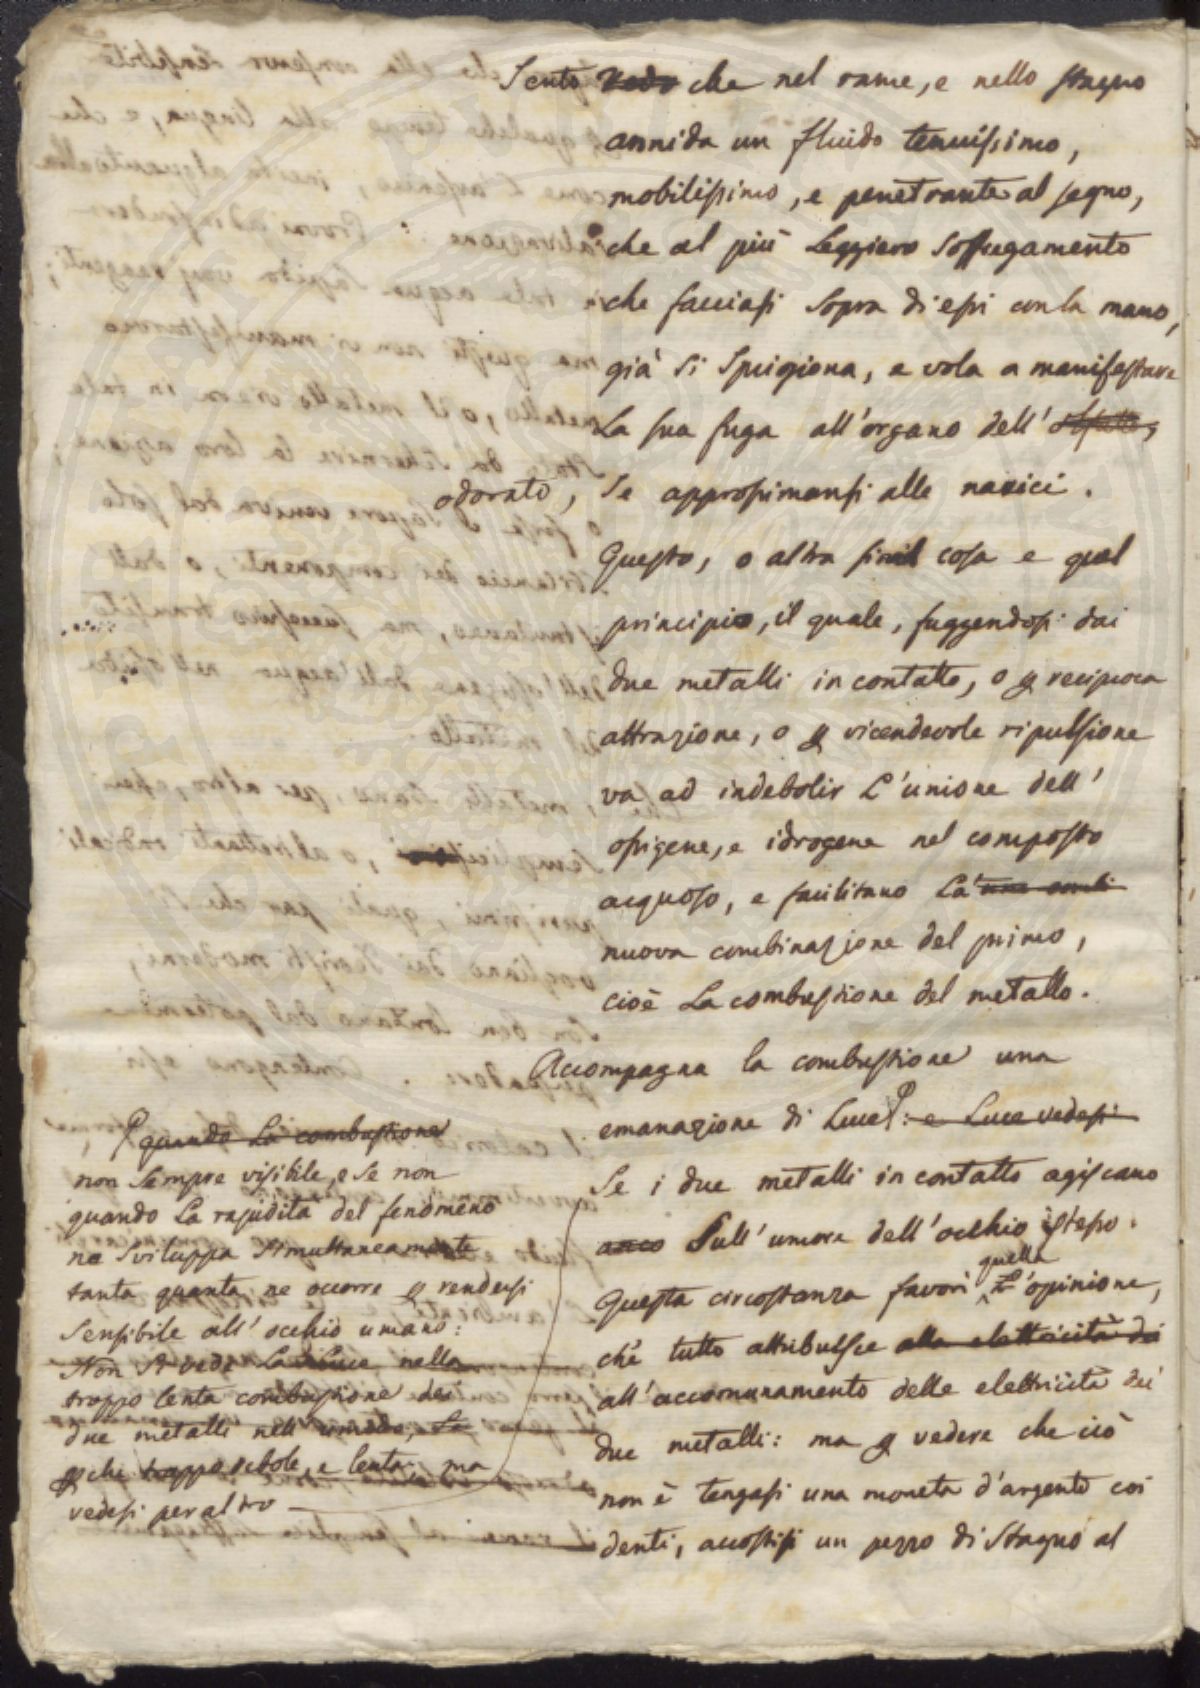 Sento vedo che nel rame, e nello stagno
annida un fluido tenuissimo,
mobilissimo, e penetrante al segno,
che al più leggiero soffregamento
che facciasi sopra di essi con la mano,
già si sprigiona, e vola a manifestare
la sua fuga all'organo dell'
odorato, se approssimansi alle narici.
Questo, o altra simil cosa e quel
principio, il quale, fuggendosi dai
due metalli in contatto, o p reciproca
attrazione, o p vicendevole ripulsione
va ad indebolir l'unione dell'
ossigene, e idrogene nel composto
acquoso, e facilitano la
nuova combinazione del primo,
cioè la combustione del metallo.
Accompagna la combustione una
emanazione di luce: e luce vedesi
Se i due metalli in contatto agiscano
anco sull'umore dell'occhio istesso.
quella
Questa circostanza favorì l'opinione,
che tutto attribuisce alla elettricità dei
all'accomunamento delle elettricità dei
due metalli: ma p vedere che ciò
non è tengasi una moneta d'argento coi
denti, accostisi un pezzo di stagno al
quando la combustione
non sempre visibile, e se non
quando la rapidità del fenomeno
ne sviluppa simultaneamente
tanta quanta ne occorre p rendersi
sensibile all'occhio umano:
Non si vede la luce nella
troppo lenta combustione dei
due metalli nell'umido, la
p che troppo debole, e lenta; ma
vedesi per altro